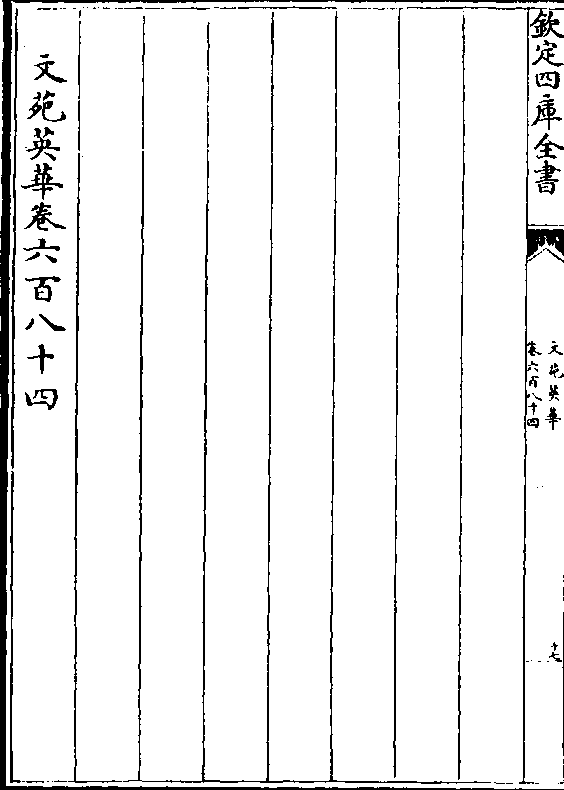 欽定四庫全書
文苑英華
卷六百八十四
十七
文苑英華卷六百八十四